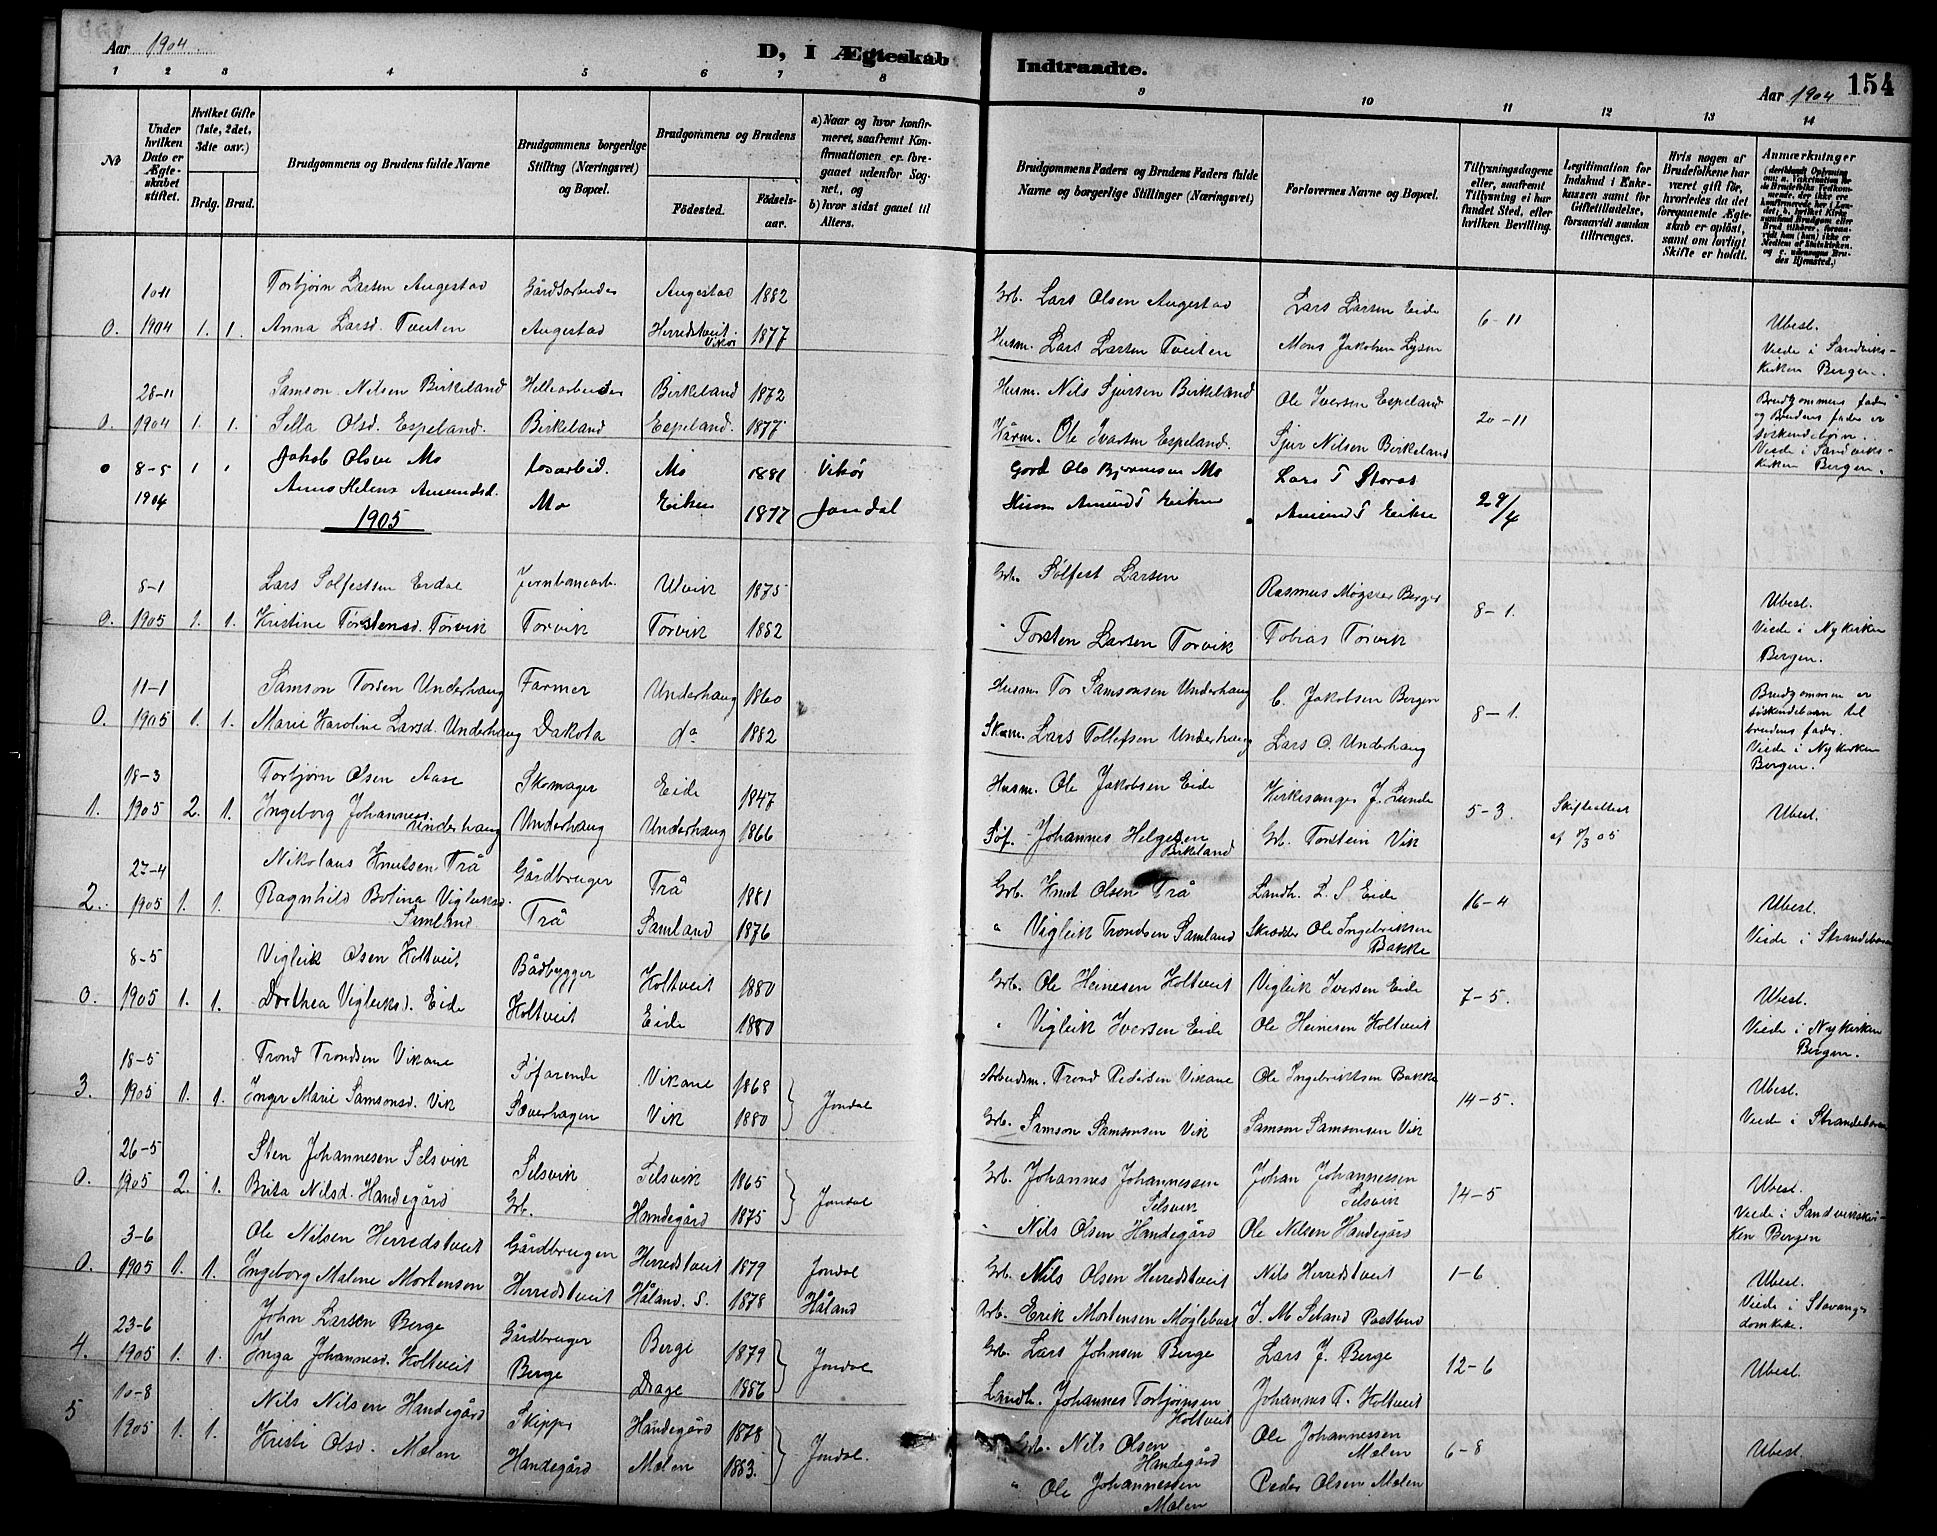 Aar 1904.
D, I Ægteskab
Indtraadte.
Aar 1904
154
1 2 3 4 5 6 7 8
9 10 11 12 13 14
No
Under hvilken Dato er Ægteskabet stiftet.
Hvilket Gifte (1ste, 2det, 3dte osv.)
Brdg. Brud.
Brudgommens og Brudens fulde Navne
Brudgommens borgerlige Stilling (Næringsvei) og Bopæl.
Brudgommens og Brudens
Fødested.
Fødselsaar.
a) Naar og hvor konfirmeret, saafremt Konfirmationen er foregaaet udenfor Sognet, og
b) hvor sidst gaaet til Alters.
Brudgommens Faders og Brudens Faders fulde Navne og borgerlige Stillinger (Næringsvei)
Forlovernes Navne og Bopæl.
Tillysningsdagene eller, saafremt Tillysning ei har fundet Sted, efter hvilken Bevilling.
Legitimation for Indskud i Enkekassen samt for Giftetilladelse, forsaavidt saadan tiltrænges.
Hvis nogen af Brudefolkene har været gift før, hvorledes da det foregaaende Ægteskab er opløst, samt om lovligt Skifte er holdt.
Anmærkninger
10-11 Torbjørn Larsen Augestad Gårdsarbeider Augestad 1882 Grb. Lars Olsen Augestad Lars Larsen Eide 6-11 Ubesl.
0. 1904 1. 1. Anna Larsd. Tveiten Augestad Herredstveit Vikør 1877 Husm. Lars Larsen Tveiten Mons Jakobsen Viede i Sandvikskirken Bergen.
28-11 Samson Nilsen Birkeland Birkeland 1872 Husm. Nils Sjursen Birkeland Ole Iversen Espeland 20-11 Brudgommens fader og Brudens fader er søskendebørn.
0. 1904 1. 1. Sella Olsd. Espeland. Birkeland Espeland. 1877 Ole Ivarsen Espeland. Sjur Nilsen Birkeland Viede i Sandvikskirken Bergen.
0 8-5 1 1 Jakob Olsen Mo Losarbeid. Mo 1881 Vikør Gbrd Ole Bjørnesen Mo Lars T Storas
1904 Anna Helena Amundsd. Mo Eiken 1877 Jondal Husm Amund T Eikne Amund T Eikne 29/4
1905
8-1 Lars Solfestsen Eidal Jernbanearb. Ulvik 1875 Grb. Solfest Larsen Rasmus Møgster Bergen 8-1. Ubesl.
0. 1905 1. 1. Kristine Torstensd. Torvik Torvik Torvik 1882 " Torsten Larsen Torvik Tobias Torvik Viede i Nykirken Bergen.
11-1 Samson Torsen Underhaug Farmer Underhaug 1860 Husm. Tor Samsonsen Underhaug C. Jakobsen Bergen 8-1. Brudgommen er søskendebarn til brudens fader.
0. 1905 1. 1. Marie Karoline Larsd. Underhaug Dakota do 1882 Skom. Lars Tollefsen Underhaug Lars O. Underhaug Viede i Nykirken Bergen.
18-3 Torbjørn Olsen Aase Skomager Eide 1847 Husm. Ole Jakobsen Eide Kirkesanger J. Lunde 5-3. Skifteattest Ubesl.
1. 1905 2. 1. Ingeborg Johannesd. Underhaug Underhaug Underhaug 1866 Søf. Johannes Helgesen Birkeland Grb. Torstein Vik
27-4 Nikolaus Knutsen Trå Gårdbruger Trå 1881 Grb. Knut Olsen Trå Landh. L. S. Eide 16-4 Ubesl.
2. 1905 1. 1. Ragnhild Bolina Vigleiksd. Samland Trå Samland 1876 " Vigleik Trondsen Samland Skrædder Ole Ingebriktsen Bakke Viede i Strandebarm
8-5 Vigleik Olsen Holtveit Bådbygger Holtveit 1880 Grb. Ole Heinesen Holtveit Vigleik Iversen Eide 7-5. Ubesl.
0. 1905 1. 1. Dorthea Vigleiksd. Eide Holtveit Eide 1880 " Vigleik Iversen Eide Ole Heinesen Holtveit Viede i Nykirken Bergen.
18-5 Trond Trondsen Vikane Søfarende Vikane 1868 Arbeidsm. Trond Pedersen Vikane Ole Ingebriktsen Bakke 14-5. Ubesl.
3. 1905 1. 1. Inger Marie Samsonsd. Vik Vik 1880 Jondal Grb. Samson Samsonsen Vik Samson Samsonsen Vik Viede i Strandebarm
26-5 Sten Johannesen Selsvik Selsvik Selsvik 1865 Grb. Johannes Johannessen Selsvik Johan Johannessen Selsvik 14-5 Ubesl.
0. 1905 2. 1. Brita Nilsd. Handegård Grb. Handegård 1875 Jondal " Nils Olsen Handegård Ole Nilsen Handegård Viede i Sandvikskirken Bergen
3-6 Ole Nilsen Herredstveit Gårdbruger Herredstveit 1879 Jondal Grb. Nils Olsen Herredstveit Nils Herredstveit 1-6 Ubesl.
0. 1905 1. 1. Ingeborg Malene Mortensen Herredstveit Håland. S. 1878 Håland Grb. Erik Mortensen J. M. Seland Postbud Viede i Stavanger domkirke.
23-6 John Larsen Berge Gårdbruger Berge 1879 Grb. Lars Johnsen Berge Lars J. Berge 12-6 Ubesl.
4. 1905 1. 1. Inga Johannesd. Holtveit Berge Drage 1886 Jondal Landh. Johannes Torbjørnsen Holtveit Johannes T. Holtveit
10-8 Nils Nilsen Handegård Skipper Handegård 1878 Grb. Nils Olsen Handegård Ole Johannessen Mælen 6-8 Ubesl.
5 1905 1. 1. Kristi Olsd. Mælen Handegård Mælen 1883. Jondal. " Ole Johannessen Mælen Peder Olsen Mælen